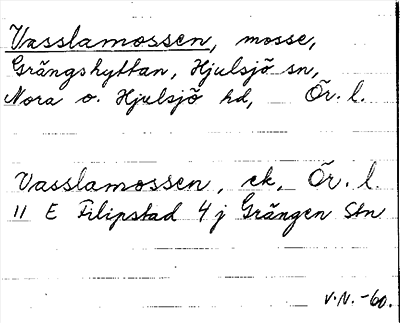 Vasslamossen, mosse,
Grängshyttan, Hjulsjö sn,
Nora o. Hjulsjö hd, Ör. l.
Vasslamossen, ek, Ör. l.
11 E Filipstad 4 j Grängen Stn
V.N. -60.